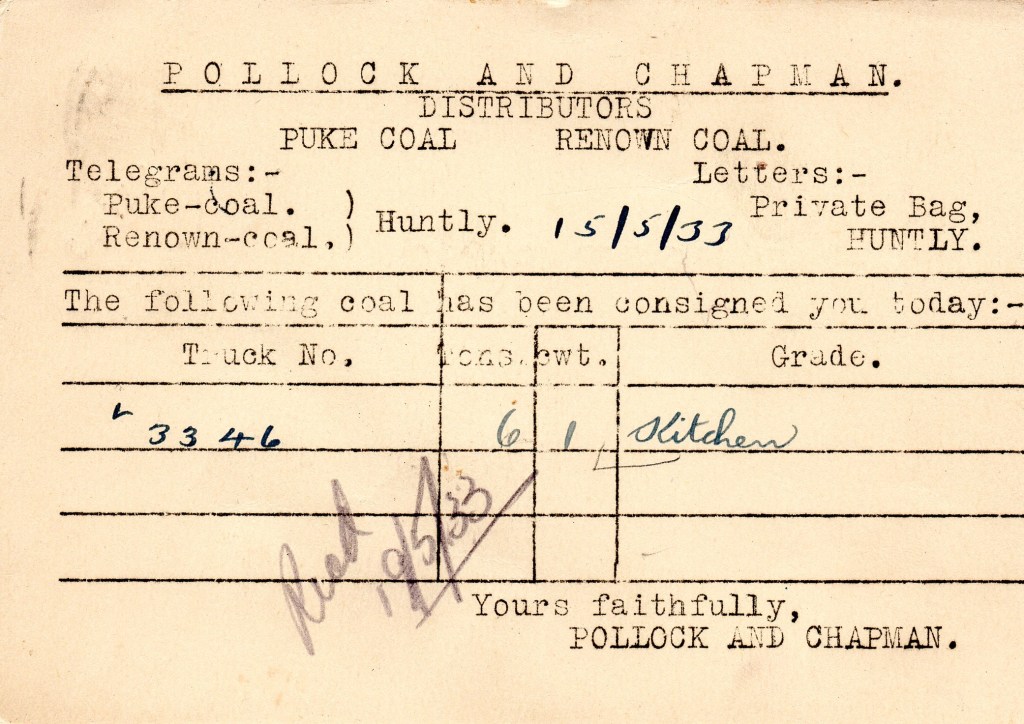 POLLOCK AND CHAPMAN.
DISTRIBUTORS
PUKE COAL RENOWN COAL.
Telegrams:- Letters:-
Puke-coal. ) Private Bag,
Renown-coal,) Huntly. 15/5/33 HUNTLY.
The following coal has been consigned you today:-
Truck No. Tons. cwt. Grade.
L 3346 6 1 Kitchen
Recd
19/5/33
Yours faithfully,
POLLOCK AND CHAPMAN.